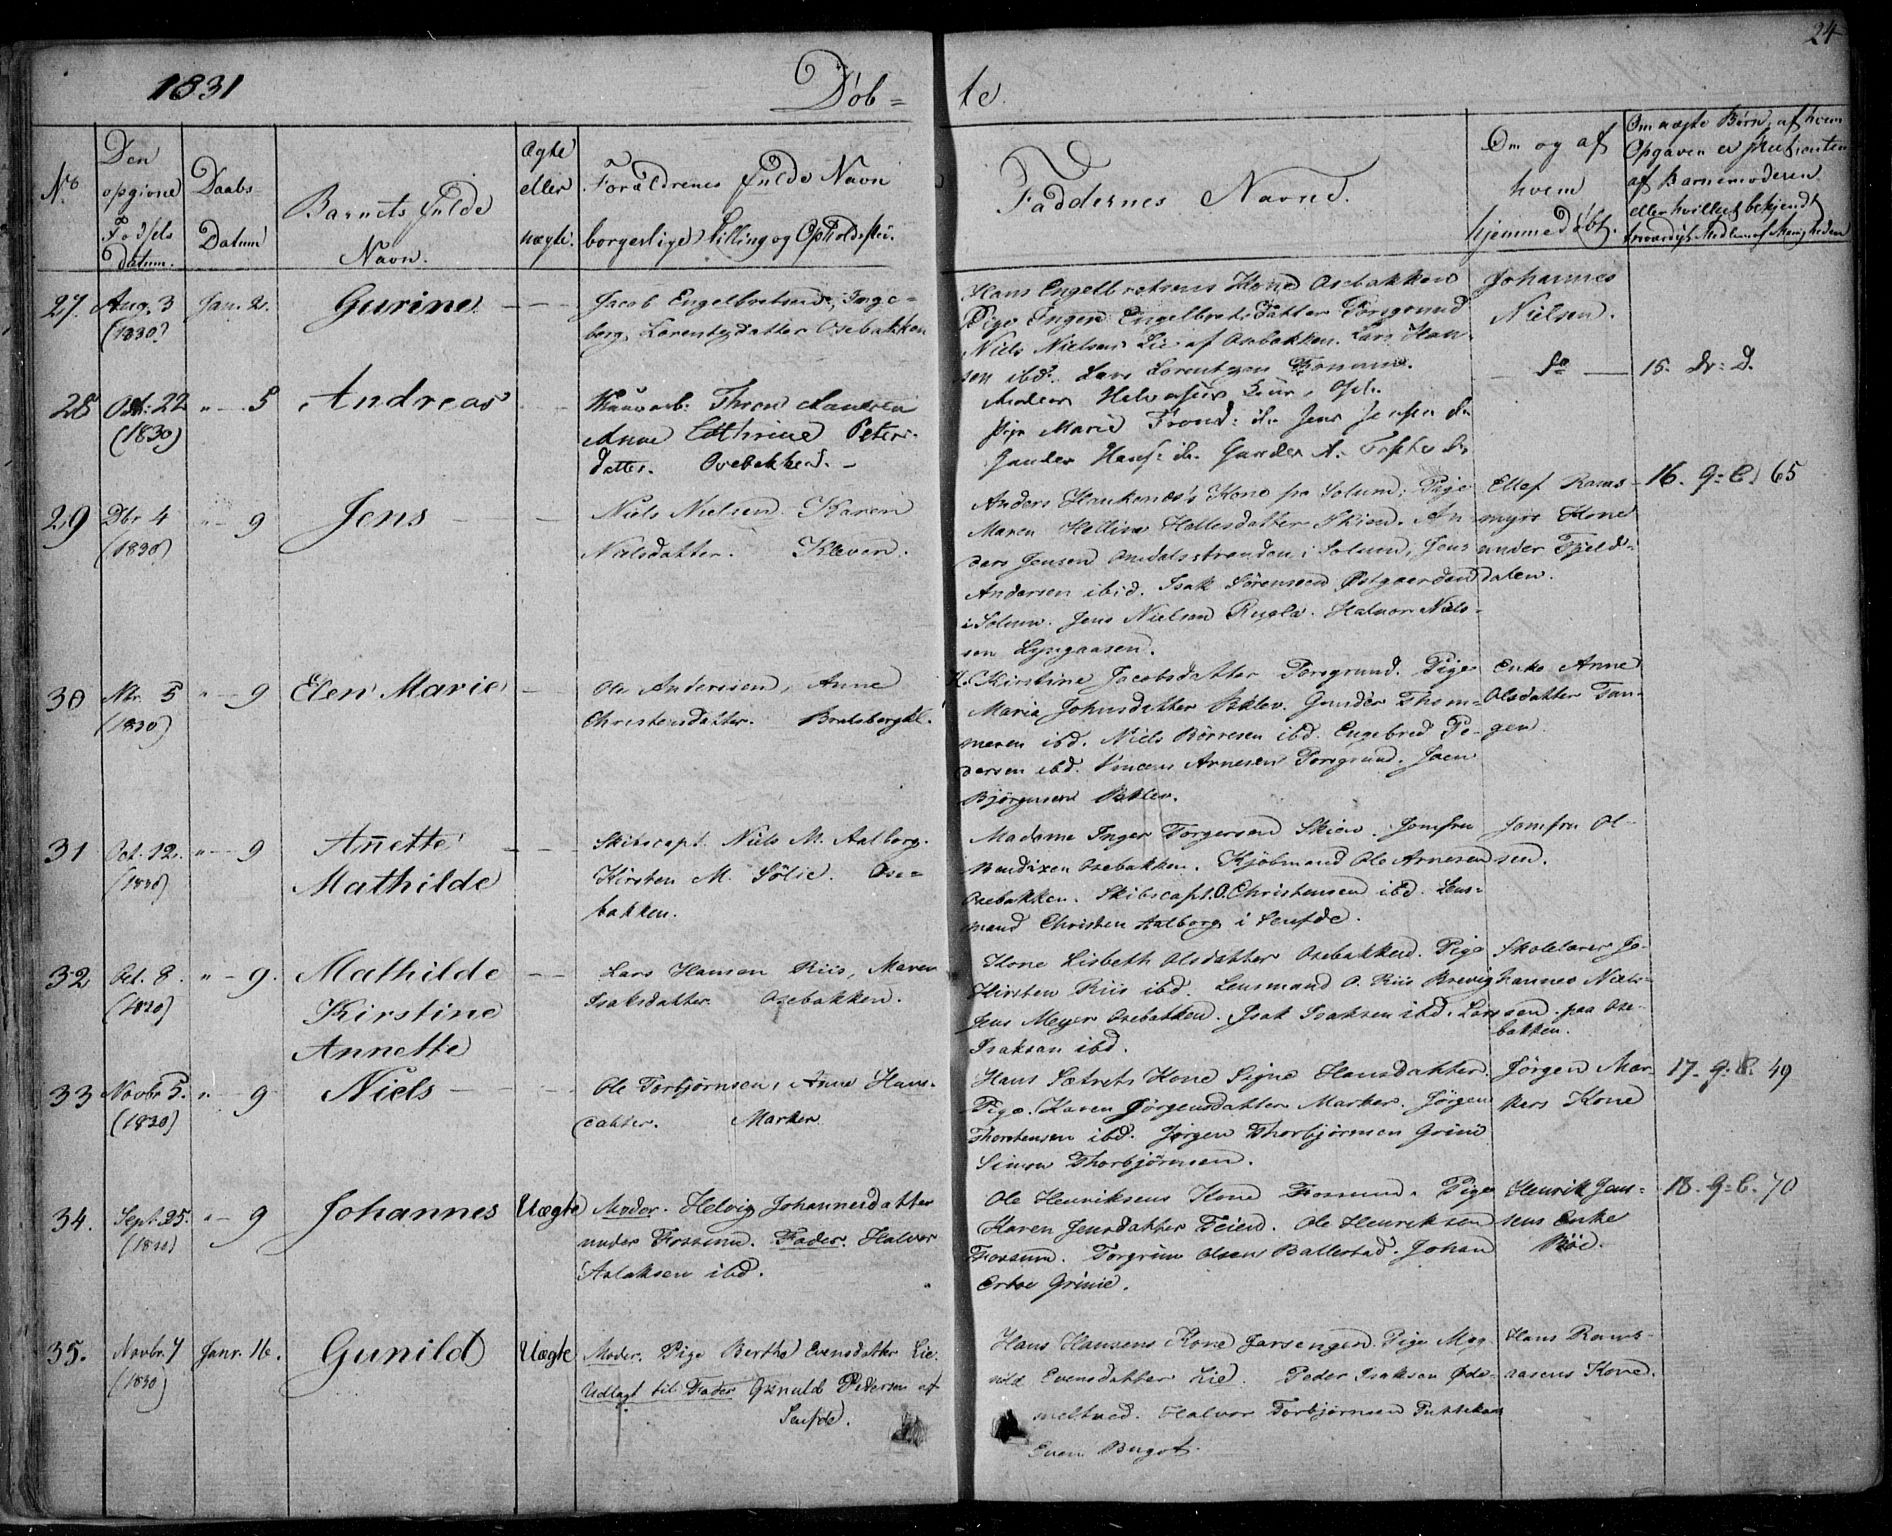 24
1831
Døb = te.
No.
Den opgivne Fødsels datum.
Daabs Datum
Barnets fulde Navn.
Ægte eller uægte.
Forældrenes fulde Navn
borgerlige Stilling og Opholdssted.
Faddernes Navne.
Om og af hvem hjemmedøbt.
Om uægte Børn, af hvem
Opgaven er
af Barnemoderen
eller hvilket bekjendt
troværdigt Medlem af Menigheden
27. Aug. 3 (1830) Jan. 2. Gurine. — —
Jacob Engelbretsen, Inge-
borg Lorentzdatter Osebakken
Hans Engelbretsens Kone Osebakken
Pige Inger Engelbretsdatter Porsgrund
Niels Nielsen Lie af Osebakken. Lars Han-
sen ibd. Lars Lorentzen
Johannes
Nielsen.
28 Oct: 22 (1830) " — 5 Andreas
Thron
Anne Cathrine Peters-
datter. Osebakken. —
Pige Marie Jens Jensen do
Gunder
— do — 15.
29 Dbr 4 (1830) " — 9 Jens — —
Niels Nielsen Karen
Nielsdatter. Kleven.
Anders Haukenes's Kone fra Solum; Pige
Maren Halvorsdatter Skien. An-
ders Jensen Omdalsstranden i Solum, Jens
Andersen ibid. Isak Sørensen Østgaarden
i Solum. Jens Nielsen Rugla. Halvor Niels-
sen Lyngaasen.
Ellef Rams-
myrs Kone
under Fjeld-
dalen.
16. 9: C. 65
30 Nbr. 5 (1830) " — 9 Elen Marie —
Ole Andersen, Anne
Christensdatter. Bratsbergkl.
K. Kirstine Jacobsdatter Porsgrund. Pige
Maria Johnsdatter Bøklev. Gunder Thom-
mesen ibd. Niels Børresen ibd. Engebred Pe-
dersen ibd. Vincens Arnesen Porsgrund. Joen
Bjørgensen Bøklev.
Enke Anne
Olsdatter Tan-
gen
31 Oct. 12. (1830) " — 9 Anette Mathilde — —
Skibscapt. Niels M. Aalborg.
Kirsten M. Sølie. Ose-
bakken.
Madame Inger Torgersen Skien. Jomfru
Bendixen Osebakken. Kjøbmand Ole Arnesen
Osebakken. Skibscapt. O. Christensen ibd. Lens-
mand Christen Aalborg i Søufde.
Jomfru Ol-
sen.
32 Oct. 8. (1830) " — 9. Mathilde Kirstine Annette — —
Lars Hansen Riis, Maren
Isaksdatter. Osebakken.
Kone Lisbeth Olsdatter Osebakken. Pige
Kirsten Riis ibd. Lensmand O. Riis Brevig
Jens Meyer Osebakken. Isak Isaksen ibd. Lars
Isaksen ibd.
Skolelærer Jo-
hannes Niels-
sen paa Ose-
bakken.
33 Novbr 5. (1830) " — 9 Niels — —
Ole Torbjørnsen, Anne Hans-
datter. Marker
Hans Sætrets Kone Signe Hansdatter.
Pige Karen Jørgensdatter Marker. Jørgen
Thorstensen ibd. Jørgen Thorbjørnsen Grini
Simon Thorbjørnsen.
Jørgen Mar-
kers Kone
17. 9. B. 49
34. Sept. 25. (1830) " — 9 Johannes Uægte
Moder. Helvig Johannesdatter
under Fossum. Fader. Halvor
Aslaksen ibd.
Ole Henriksens Kone Fossum. Pige
Karen Jensdatter Feien. Ole Henriksen
Fossum. Torgrim Olsen Ballestad. Johan
Ertse Grinie.
Henrik Jens-
sens Enke
Røe.
18. 9: C. 70
35. Novbr. 7 (1830) Janr. 16. Gunild Uægte
Moder. Pige Berthe Evensdatter Lie.
Udlagt til Fader Gunuld Pedersen af
Søufde.
Hans Hansens Kone Jarsengen. Pige Mag-
nild Evensdatter Lie. Peder Isaksen Øde-
meltved. Halvor Torbjørnsen Puttekaas
Even Bugot.
Hans Rams-
aasens Kone.